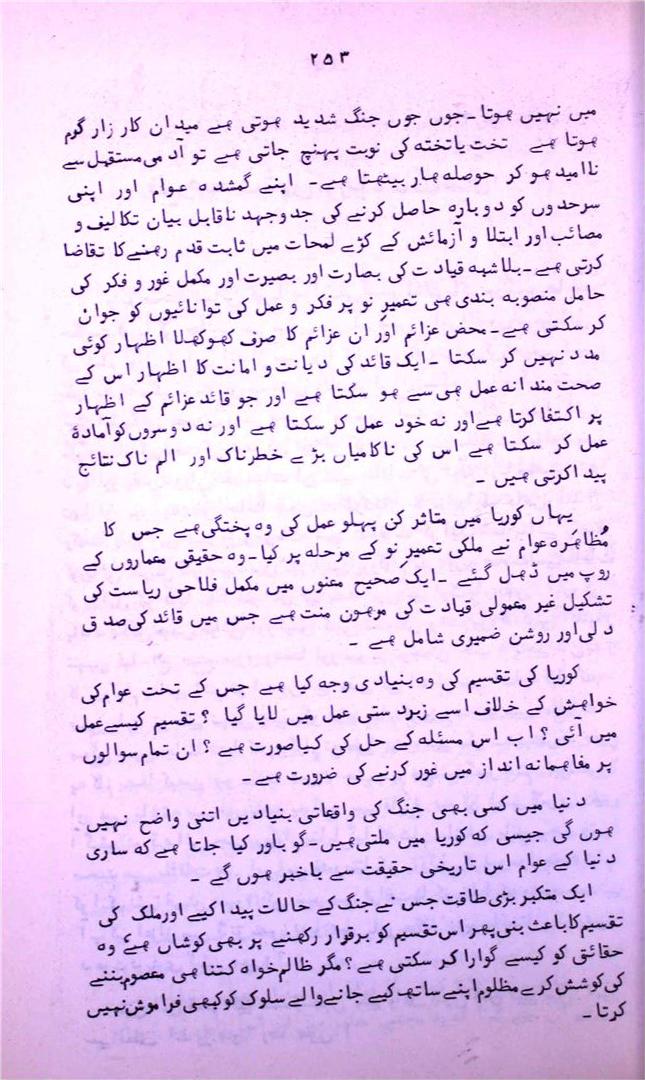 ۲۵۳
میں نہیں ہوتا۔ جوں جوں جنگ شدید ہوتی ہے میدان کار زار گرم
ہوتا ہے تخت یا تختہ کی نوبت پہنچ جاتی ہے تو آدمی مستقبل سے
ناامید ہو کر حوصلہ ہار بیٹھتا ہے۔ اپنے گمشدہ عوام اور اپنی
سرحدوں کو دوبارہ حاصل کرنے کی جدوجہد ناقابل بیان تکالیف و
مصائب اور ابتلا و آزمائش کے کڑے لمحات میں ثابت قدم رہنے کا تقاضا
کرتی ہے۔ بلاشبہ قیادت کی بصارت اور بصیرت اور مکمل غور و فکر کی
حامل منصوبہ بندی ہی تعمیرِ نو پر فکر و عمل کی توانائیوں کو جوان
کر سکتی ہے۔ محض عزائم اور ان عزائم کا صرف کھوکھلا اظہار کوئی
مدد نہیں کر سکتا ۔ ایک قائد کی دیانت و امانت کا اظہار اس کے
صحت مندانہ عمل ہی سے ہو سکتا ہے اور جو قائد عزائم کے اظہار
پر اکتفا کرتا ہے اور نہ خود عمل کر سکتا ہے اور نہ دوسروں کو آمادۂ
عمل کر سکتا ہے اس کی ناکامیاں بڑے خطرناک اور الم ناک نتائج
پیدا کرتی ہیں ۔
یہاں کوریا میں متاثر کن پہلو عمل کی وہ پختگی ہے جس کا
مُظاہرہ عوام نے ملکی تعمیرِ نو کے مرحلہ پر کیا۔ وہ حقیقی معماروں کے
روپ میں ڈھل گئے ۔ ایک صحیح معنوں میں مکمل فلاحی ریاست کی
تشکیل غیر معمولی قیادت کی مرہون منت ہے جس میں قائد کی صدق
دلی اور روشن ضمیری شامل ہے ۔
کوریا کی تقسیم کی وہ بنیادی وجہ کیا ہے جس کے تحت عوام کی
خواہش کے خلاف اسے زبردستی عمل میں لایا گیا ؟ تقسیم کیسے عمل
میں آئی ؟ اب اس مسئلہ کے حل کی کیا صورت ہے ؟ ان تمام سوالوں
پر مفاہمانہ انداز میں غور کرنے کی ضرورت ہے ۔
دنیا میں کسی بھی جنگ کی واقعاتی بنیادیں اتنی واضح نہیں
ہوں گی جیسی کہ کوریا میں ملتی ہیں۔ گو باور کیا جاتا ہے کہ ساری
دنیا کے عوام اس تاریخی حقیقت سے باخبر ہوں گے ۔
ایک متکبر بڑی طاقت جس نے جنگ کے حالات پیدا کیے اور ملک کی
تقسیم کا باعث بنی پھر اس تقسیم کو برقرار رکھنے پر بھی کوشاں ہے وہ
حقائق کو کیسے گوارا کر سکتی ہے ؟ مگر ظالم خواہ کتنا ہی معصوم بننے
کی کوشش کرے مظلوم اپنے ساتھ کیے جانے والے سلوک کو کبھی فراموش نہیں
کرتا ۔